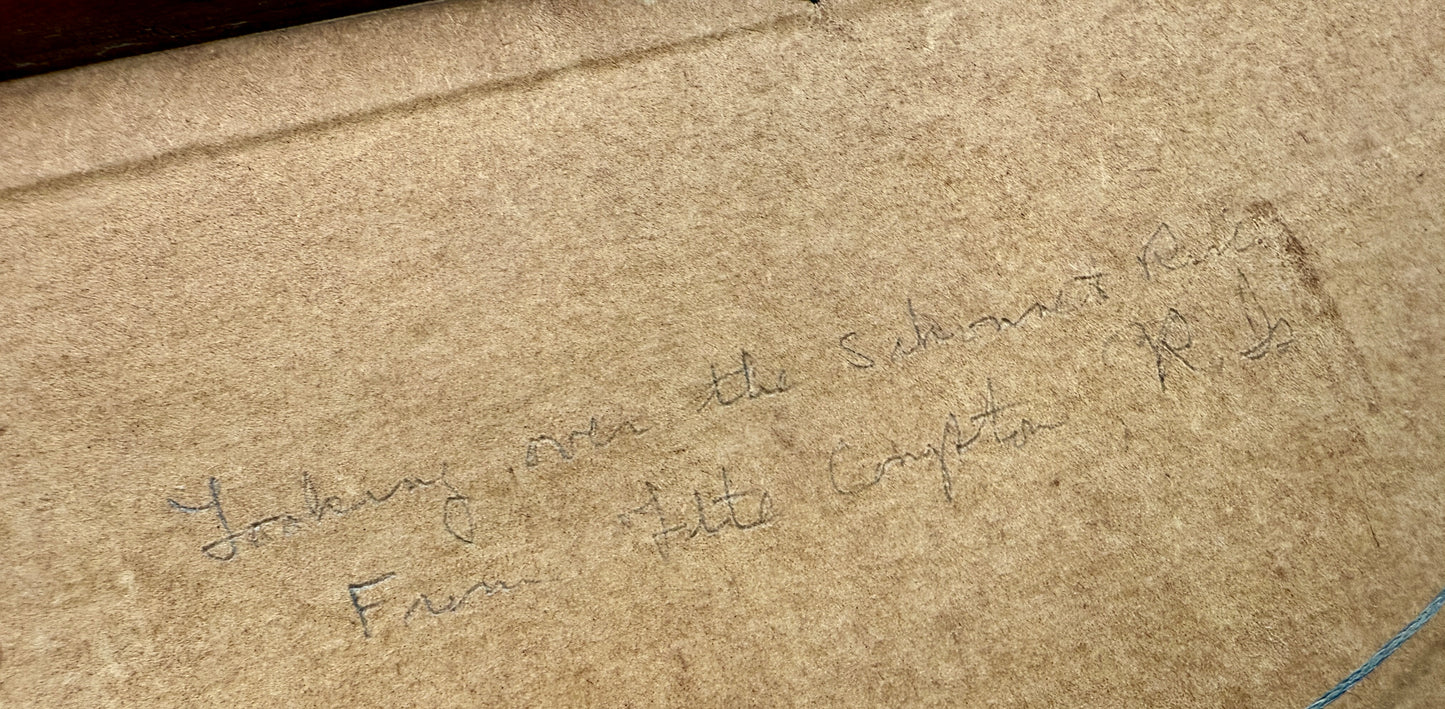 Looking over the Sakonnet River
From Little Compton, R. Is